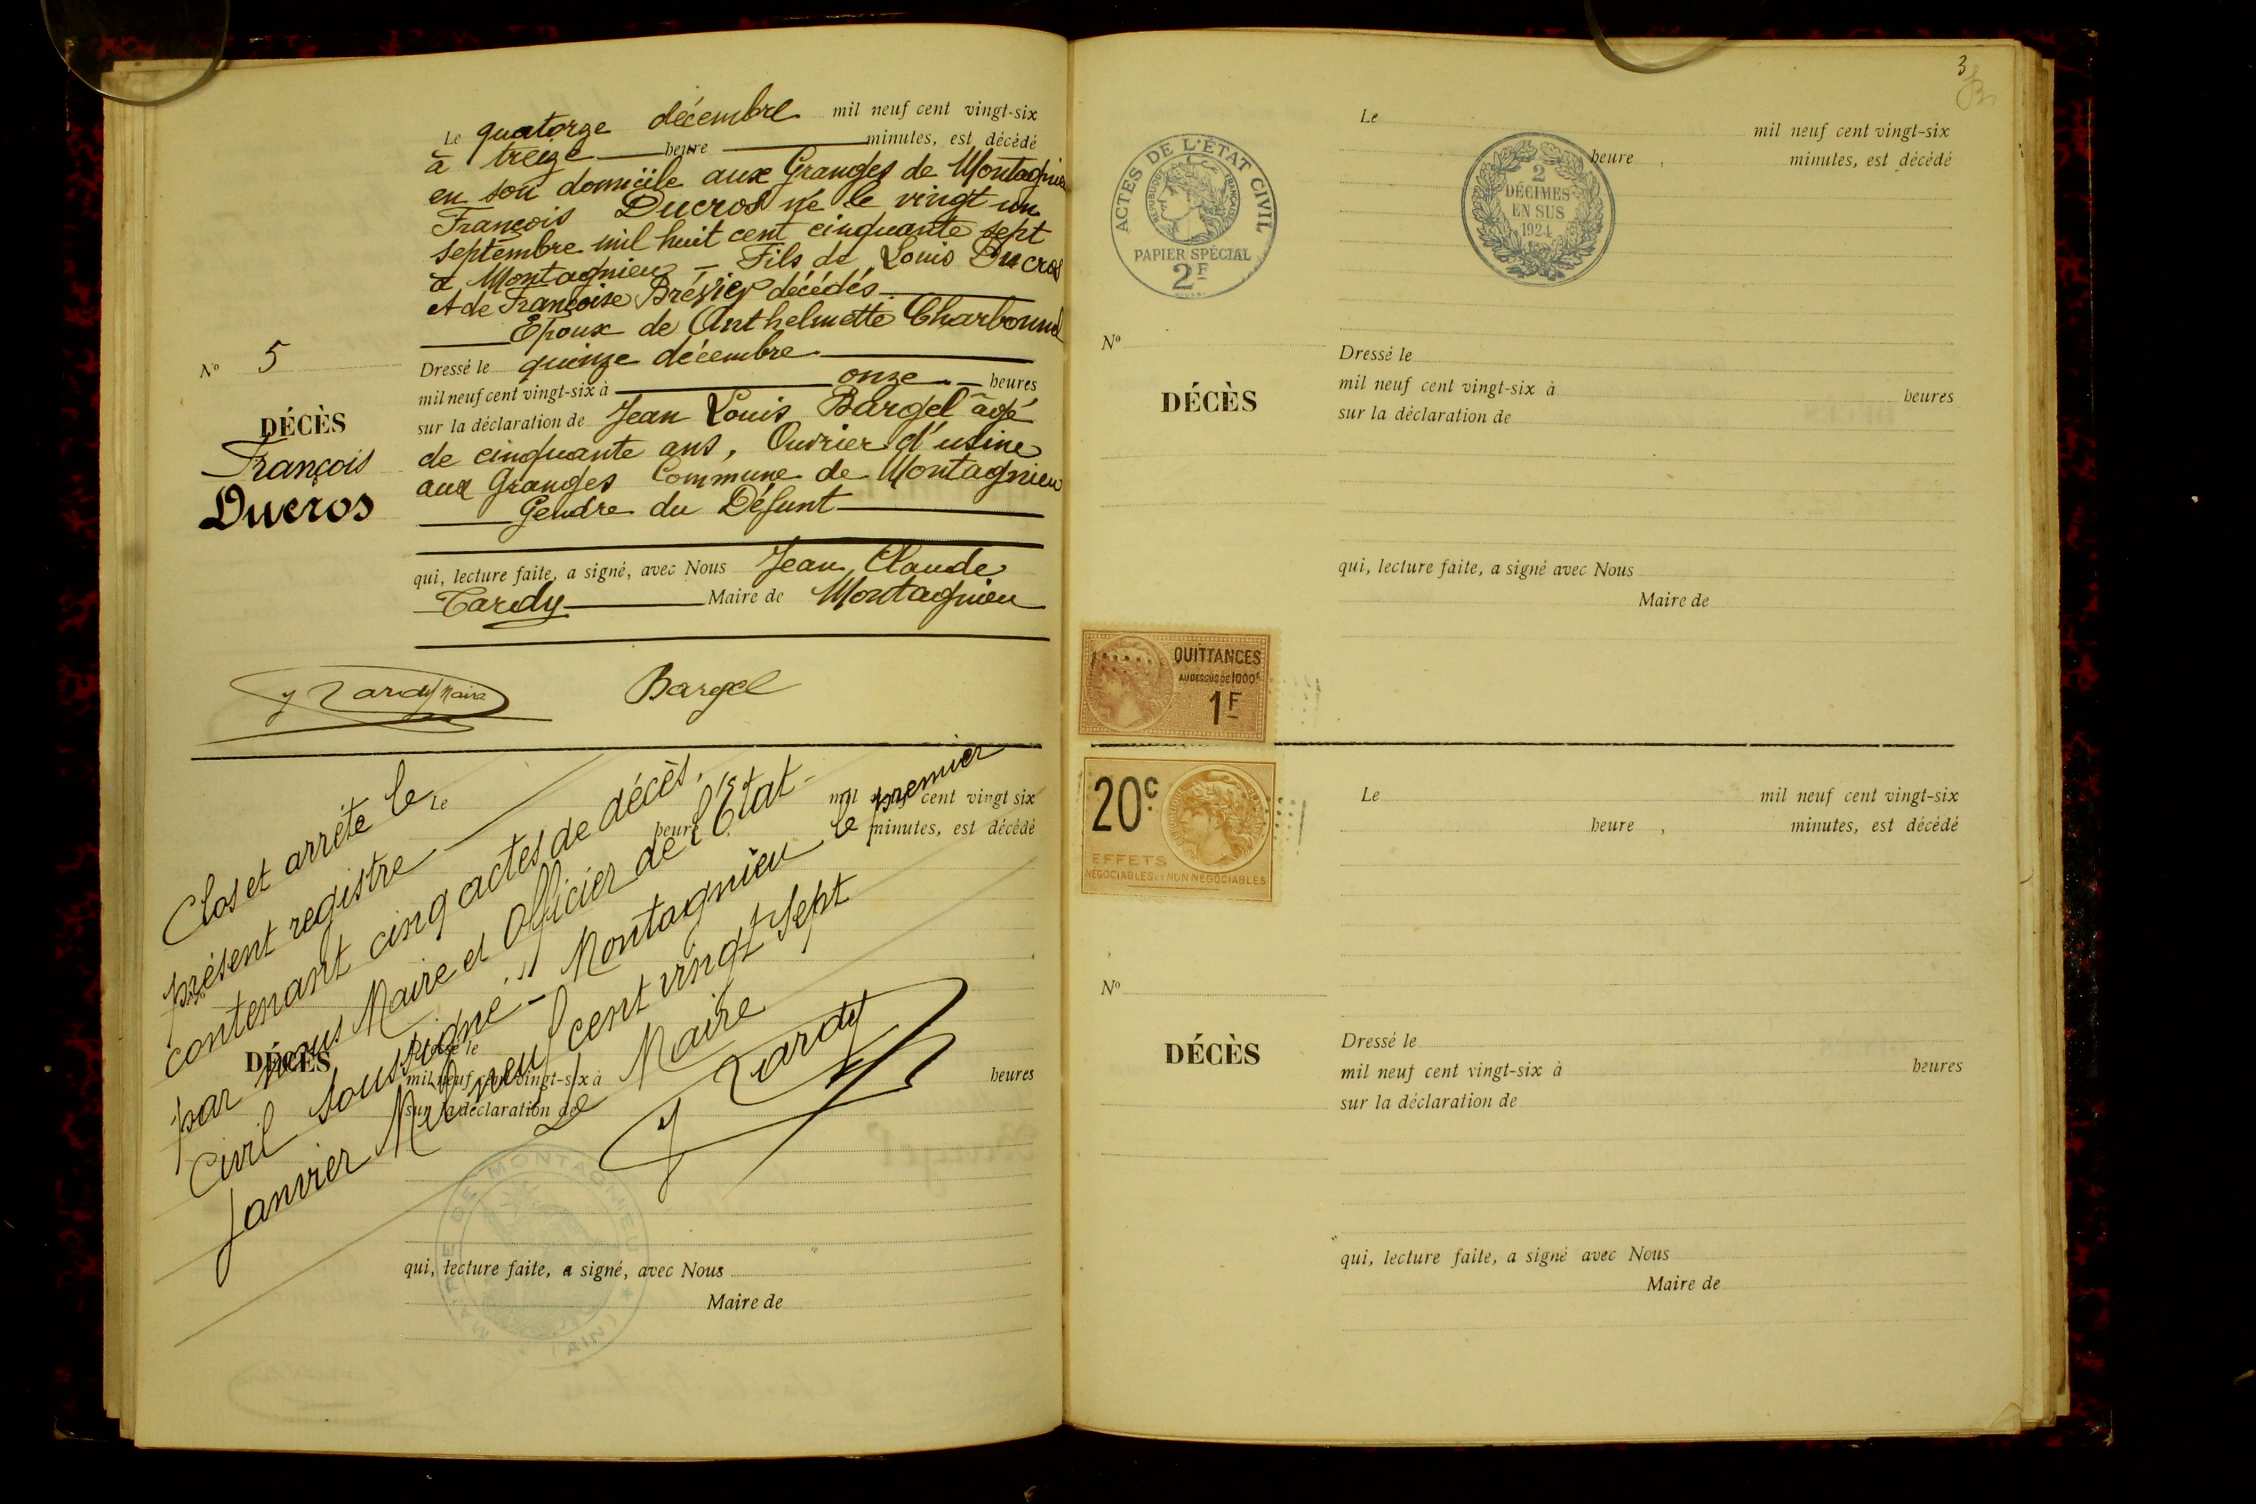 Le quatorze décembre mil neuf cent vingt-six
à treize heure minutes, est décédé
en son domicile aux Granges de Montagnieu
François Ducros né le vingt un
septembre mil huit cent cinquante sept
à Montagnieu – Fils de Louis Ducros
et de Françoise Brévier décédés
Epoux de Anthelmette Charbonnel
N° 5
DÉCÈS
François
Ducros
Dressé le quinze décembre
mil neuf cent vingt-six à onze heures
sur la déclaration de Jean Louis Bargel âgé
de cinquante ans, Ouvrier d'usine
aux Granges Commune de Montagnieu
Gendre du Défunt
qui, lecture faite, a signé, avec Nous Jean Claude
Tardy Maire de Montagnieu
J Tardy Maire
Bargel
Le mil neuf cent vingt six
heure minutes, est décédé
Clos et arrêté le
présent registre
contenant cinq actes de décès,
par nous Maire et Officier de l'Etat-
Civil soussigné – Montagnieu le premier
Janvier Mil neuf cent vingt sept
Le Maire
J Tardy
DÉCÈS
Dressé le
mil neuf cent vingt-six à heures
sur la déclaration de
MAIRIE DE MONTAGNIEU * (AIN)
qui, lecture faite, a signé, avec Nous
Maire de
3
Le mil neuf cent vingt-six
heure , minutes, est décédé
ACTES DE L'ÉTAT CIVIL
RÉPUBLIQUE FRANÇAISE
PAPIER SPÉCIAL
2F
2
DÉCIMES
EN SUS
1924
N°
DÉCÈS
Dressé le
mil neuf cent vingt-six à heures
sur la déclaration de
qui, lecture faite, a signé avec Nous
Maire de
QUITTANCES
AU DESSUS DE 1000F
1F
20c
EFFETS
NÉGOCIABLES ET NON NÉGOCIABLES
Le mil neuf cent vingt-six
heure , minutes, est décédé
N°
DÉCÈS
Dressé le
mil neuf cent vingt-six à heures
sur la déclaration de
qui, lecture faite, a signé avec Nous
Maire de